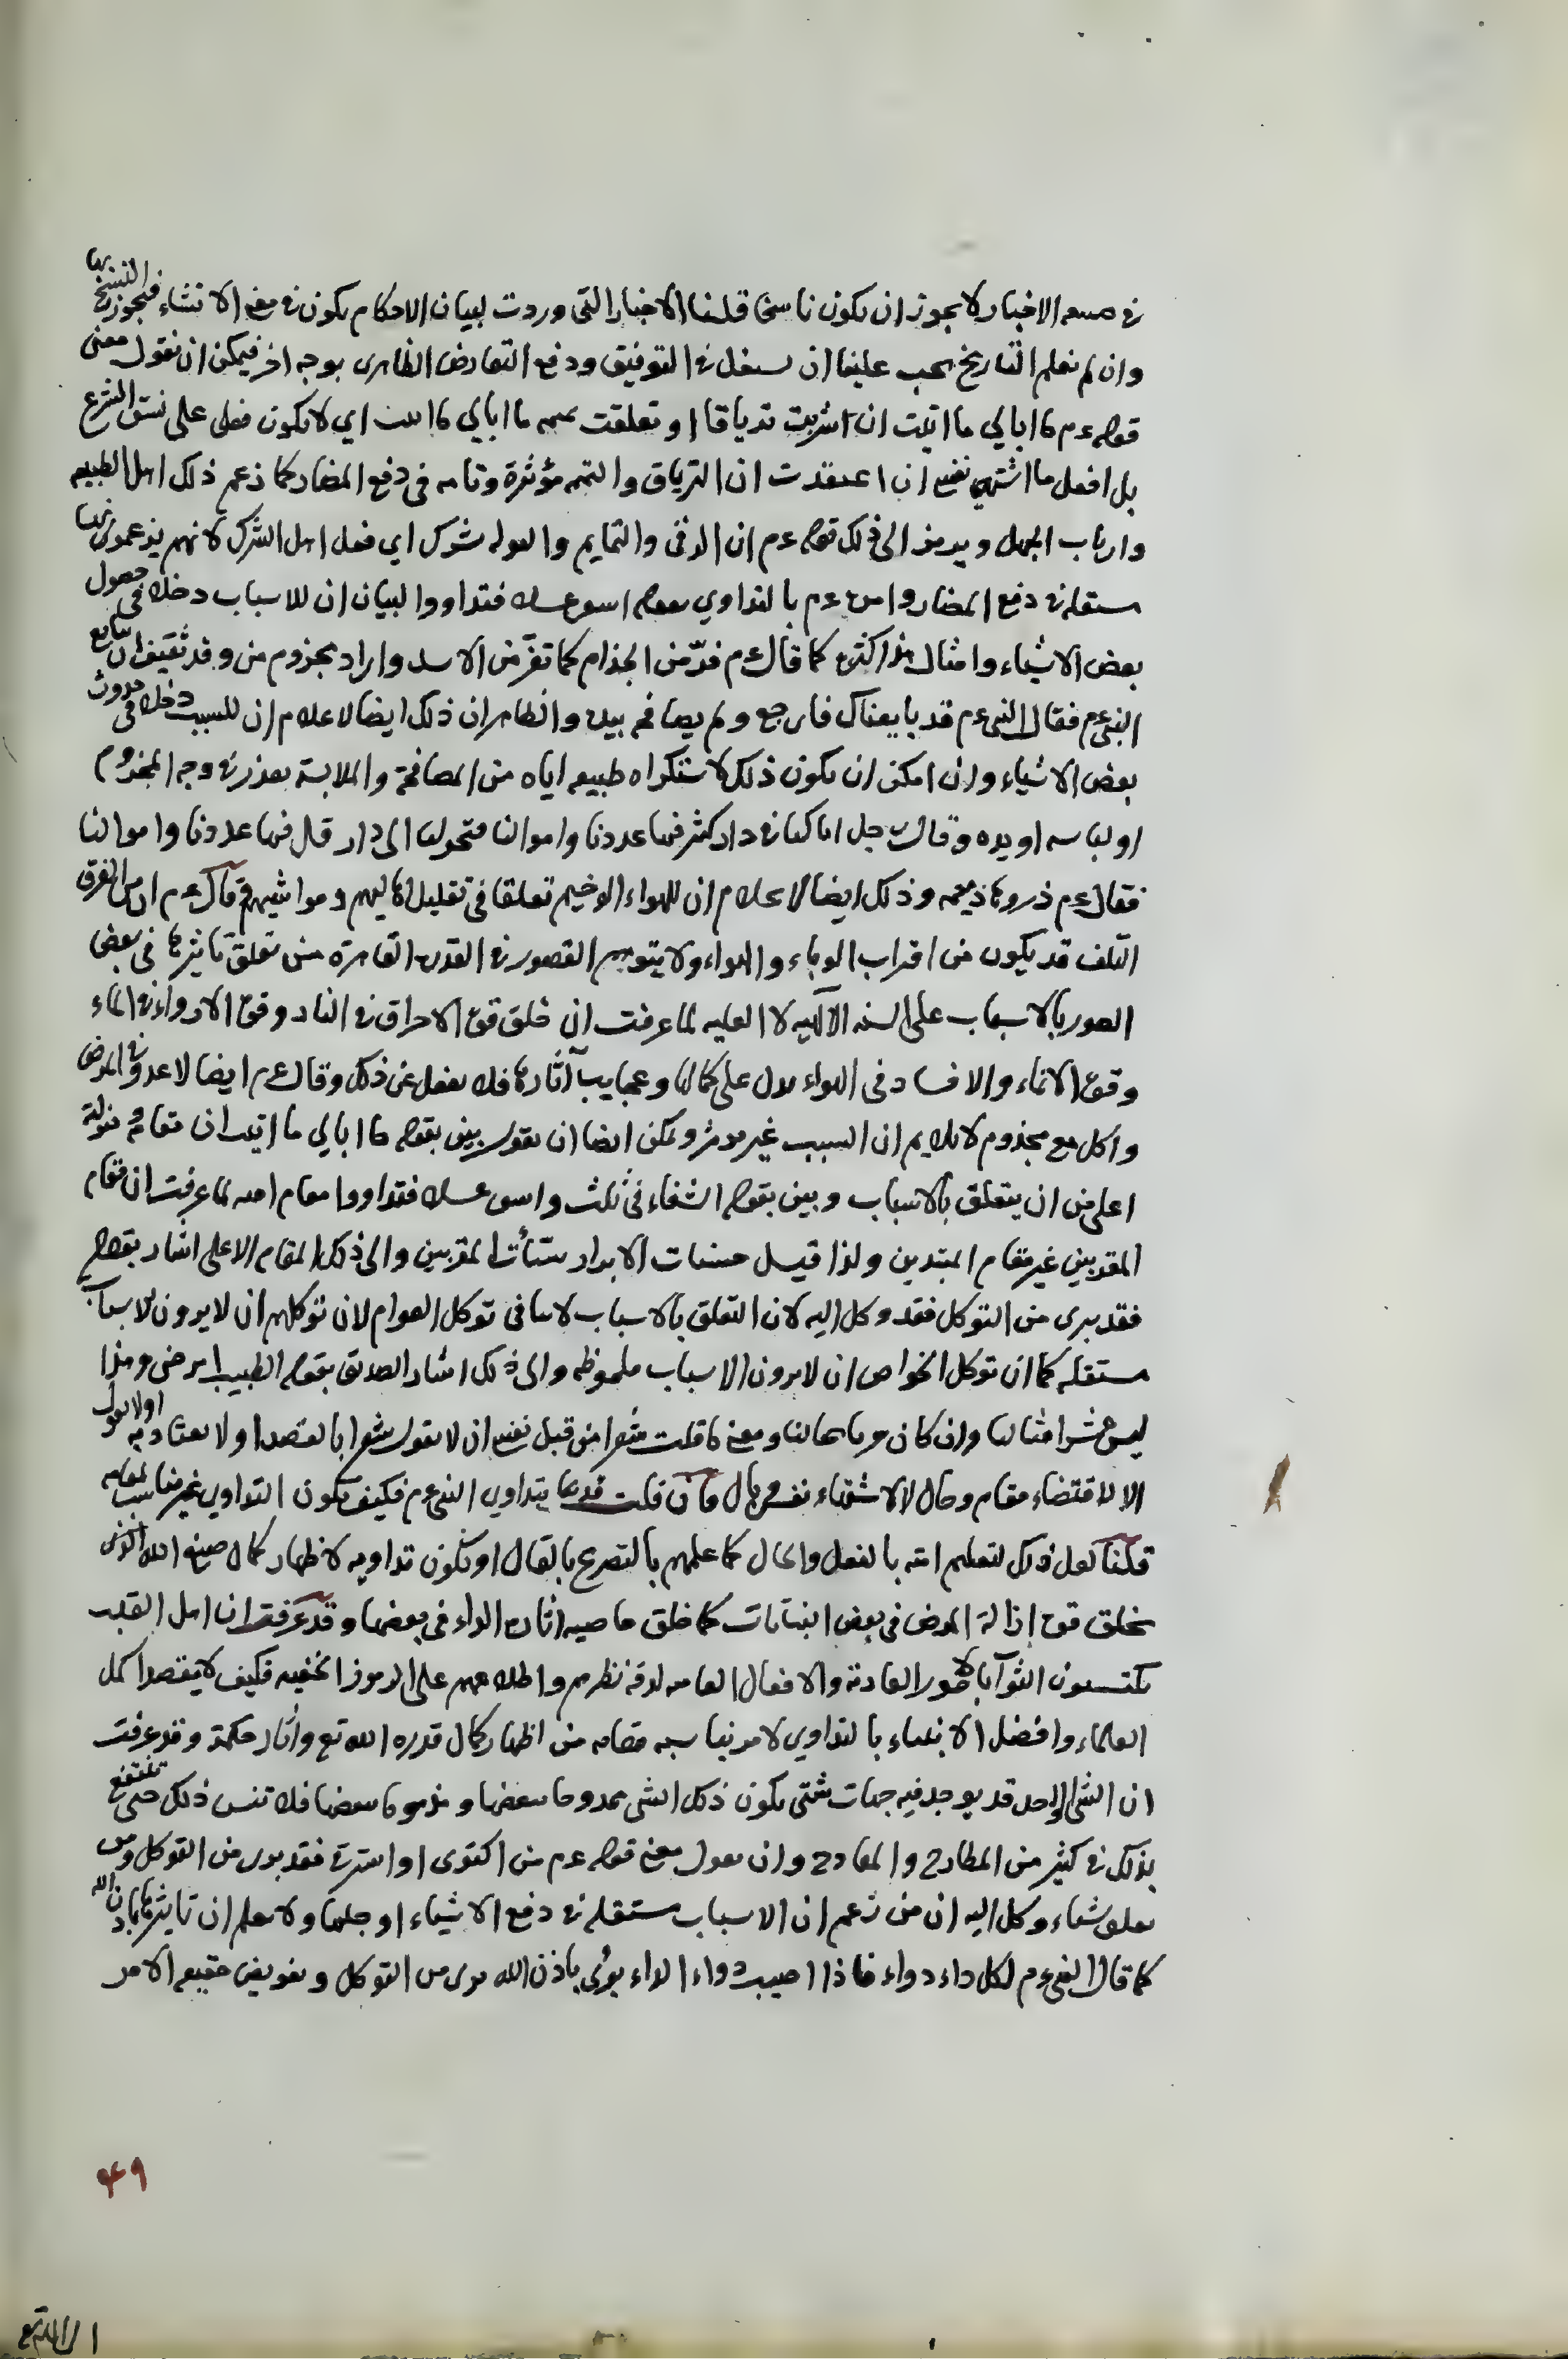 في صيغه الاخبار لا يجوز ان يكون ناسخا قلنا الاخبار التي وردت لبيان الاحكام يكون في معنى الانشاء فيجوز النسخ بها
وان لم نعلم التاريخ يجب علينا ان في التوفيق ودفع التعارض الظاهرى بوجه اخر فيمكن ان نقول معنى
قوله عم ما ابالي ما اتيت ان اشربت ترياقا او تعلقت تميمه ما ابالي ما اتيت اي لا يكون فعلى على نسق الشرع
بل افعل ما اشتهى نفسى ان اعتقدت ان الترياق والتميمه مؤثرة وتامه في دفع المضار كما زعم ذلك اهل الطبيعه
وارباب الجهل ويرمز الى ذلك قوله عم ان الرقى والتمايم والتوله شرك اي فعل اهل الشرك لانهم يزعمون انها
مستقله في دفع المضار وامره عم بالتداوي بقوله فتداووا لبيان ان للاسباب دخلا في حصول
بعض الاشياء وامثال هذا كثيره كما قال عم فرّ من الجذام كما تفرّ من الاسد واراد مجذوم من وفد ثقيف ان يبايع
النبي عم فقال النبي عم قد بايعناك فارجع ولم يصافحه بيده والظاهر ان ذلك ايضا لاعلام ان للسبب دخلا في حدوث
بعض الاشياء وان امكن ان يكون ذلك لاستكراه طبيعه اياه من المصافحة والملابسة بعذر في وجه المجذوم
او لباسه او يده وقال رجل انا كنا في دار كثر فيها عددنا واموالنا فتحولنا الى دار قل فيها عددنا واموالنا
فقال عم ذروها ذميمه وذلك ايضا لاعلام ان للهواء الوخيم تعلقا في تقليل اهاليهم ومواشيهم وقال عم ان من القرف
التلف قد يكون من اقتراب الوباء والهواء ولا يتوهم القصور في القدره القاهرة من تعلق تاثيرها في بعض
الصور بالاسباب على السنه الالهيه لا العليه لما عرفت ان خلق قوة الاحراق في النار وقوة الارواء في الماء
وقوة الانماء والافساد في الهواء يدل على كمالها وعجايب آثارها فلا تغفل عن ذلك وقال عم ايضا لا عدوى في المرض
واكل مع مجذوم لاعلامهم ان السبب غير مؤثر ويمكن ايضا ان نقول بين بقوله ما ابالي ما اتيت ان مقامه ومنزلته
اعلى من ان يتعلق بالاسباب وبين بقوله الشفاء في ثلث فتداووا مقام امته لما عرفت ان مقام
المقربين غير مقام المبتدين ولذا قيل حسنات الابرار سيئات المقربين والى ذلك المقام الاعلى اشار بقوله
فقد برى من التوكل فقد وكل اليه لان التعلق بالاسباب لا ينافى توكل العوام لان توكلهم ان لا يرون الاسباب
مستقله كما ان توكل الخواص ان لا يرون الاسباب ملحوظه والى ذلك اشار الصديق بقوله الطبيب امرضى وهذا
ليس لنا وان كان بحالنا ومعنى ما قلت شعرا من قبل نفسى ان لا نقول شعرا بالقصد او لا نعتاد به او لا نقول
الا لاقتضاء مقام وحال لا لاشتهاء نفس فان قلت قد يتداوى النبي عم فكيف يكون التداوي غير مناسب لمقامه
قلنا لعل ذلك لتعليم امته بالفعل والحال كما علمهم بالتصريح بالقال او يكون تداويه لاظهار كمال صنع الله الذى
يخلق قوة ازالة المرض في بعض النباتات كما خلق خاصيه اثارة الداء في بعضها وقد عرفت ان اهل القلب
يكتسبون الثواب بالامور العادته والافعال العاميه لدقة نظرهم واطلاعهم على الرموز الخفيه فكيف لا يقصد اكمل
العلماء وافضل الانبياء بالتداوي لامر يناسب مقامه من اظهار كمال قدره الله تع وآثار حكمته وقد عرفت
ان الشى الواحد قد يوجد فيه جهات شتى يكون ذلك الشى ممدوحا ببعضها ومذموما ببعضها فلا تنس ذلك حتى تنتفع
بذلك في كثير من المطارح والمقادح وان نقول معنى قوله عم من اكتوى او استرقى فقد برى من التوكل ومن
تعلق شياء وكل اليه ان من زعم ان الاسباب مستقله في دفع الاشياء او جلبها ولا يعلم ان تاثيرها باذن الله
كما قال النبي عم لكل داء دواء فاذا اصيب دواء الداء برئ باذن الله برى من التوكل وتفويض حقيقه الامر
٤٩
الى الله تع